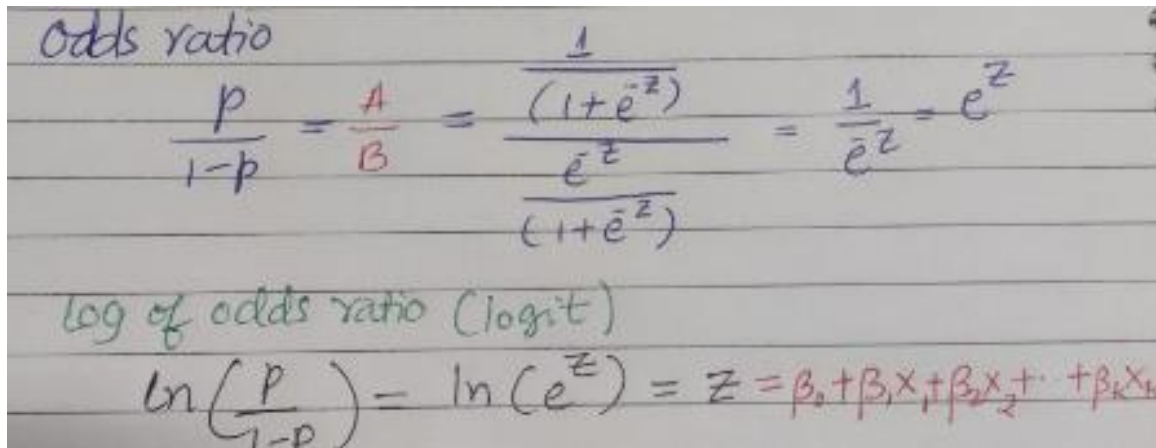 Odds ratio
p/(1-p) = A/B = (1/(1+e^-z))/(e^-z/(1+e^-z)) = 1/e^-z = e^z
Log of odds ratio (logit)
ln(p/(1-p)) = ln(e^z) = z = β₀+β₁x₁+β₂x₂+·· +βₖxₖ